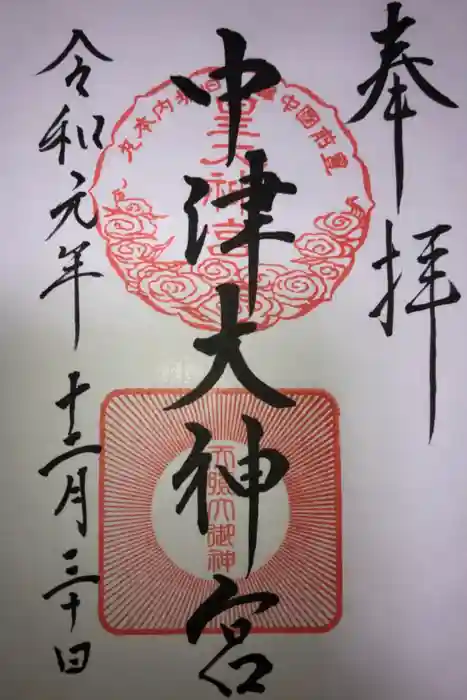 奉拝
中津大神宮
令和元年十二月三十日
天照大御神